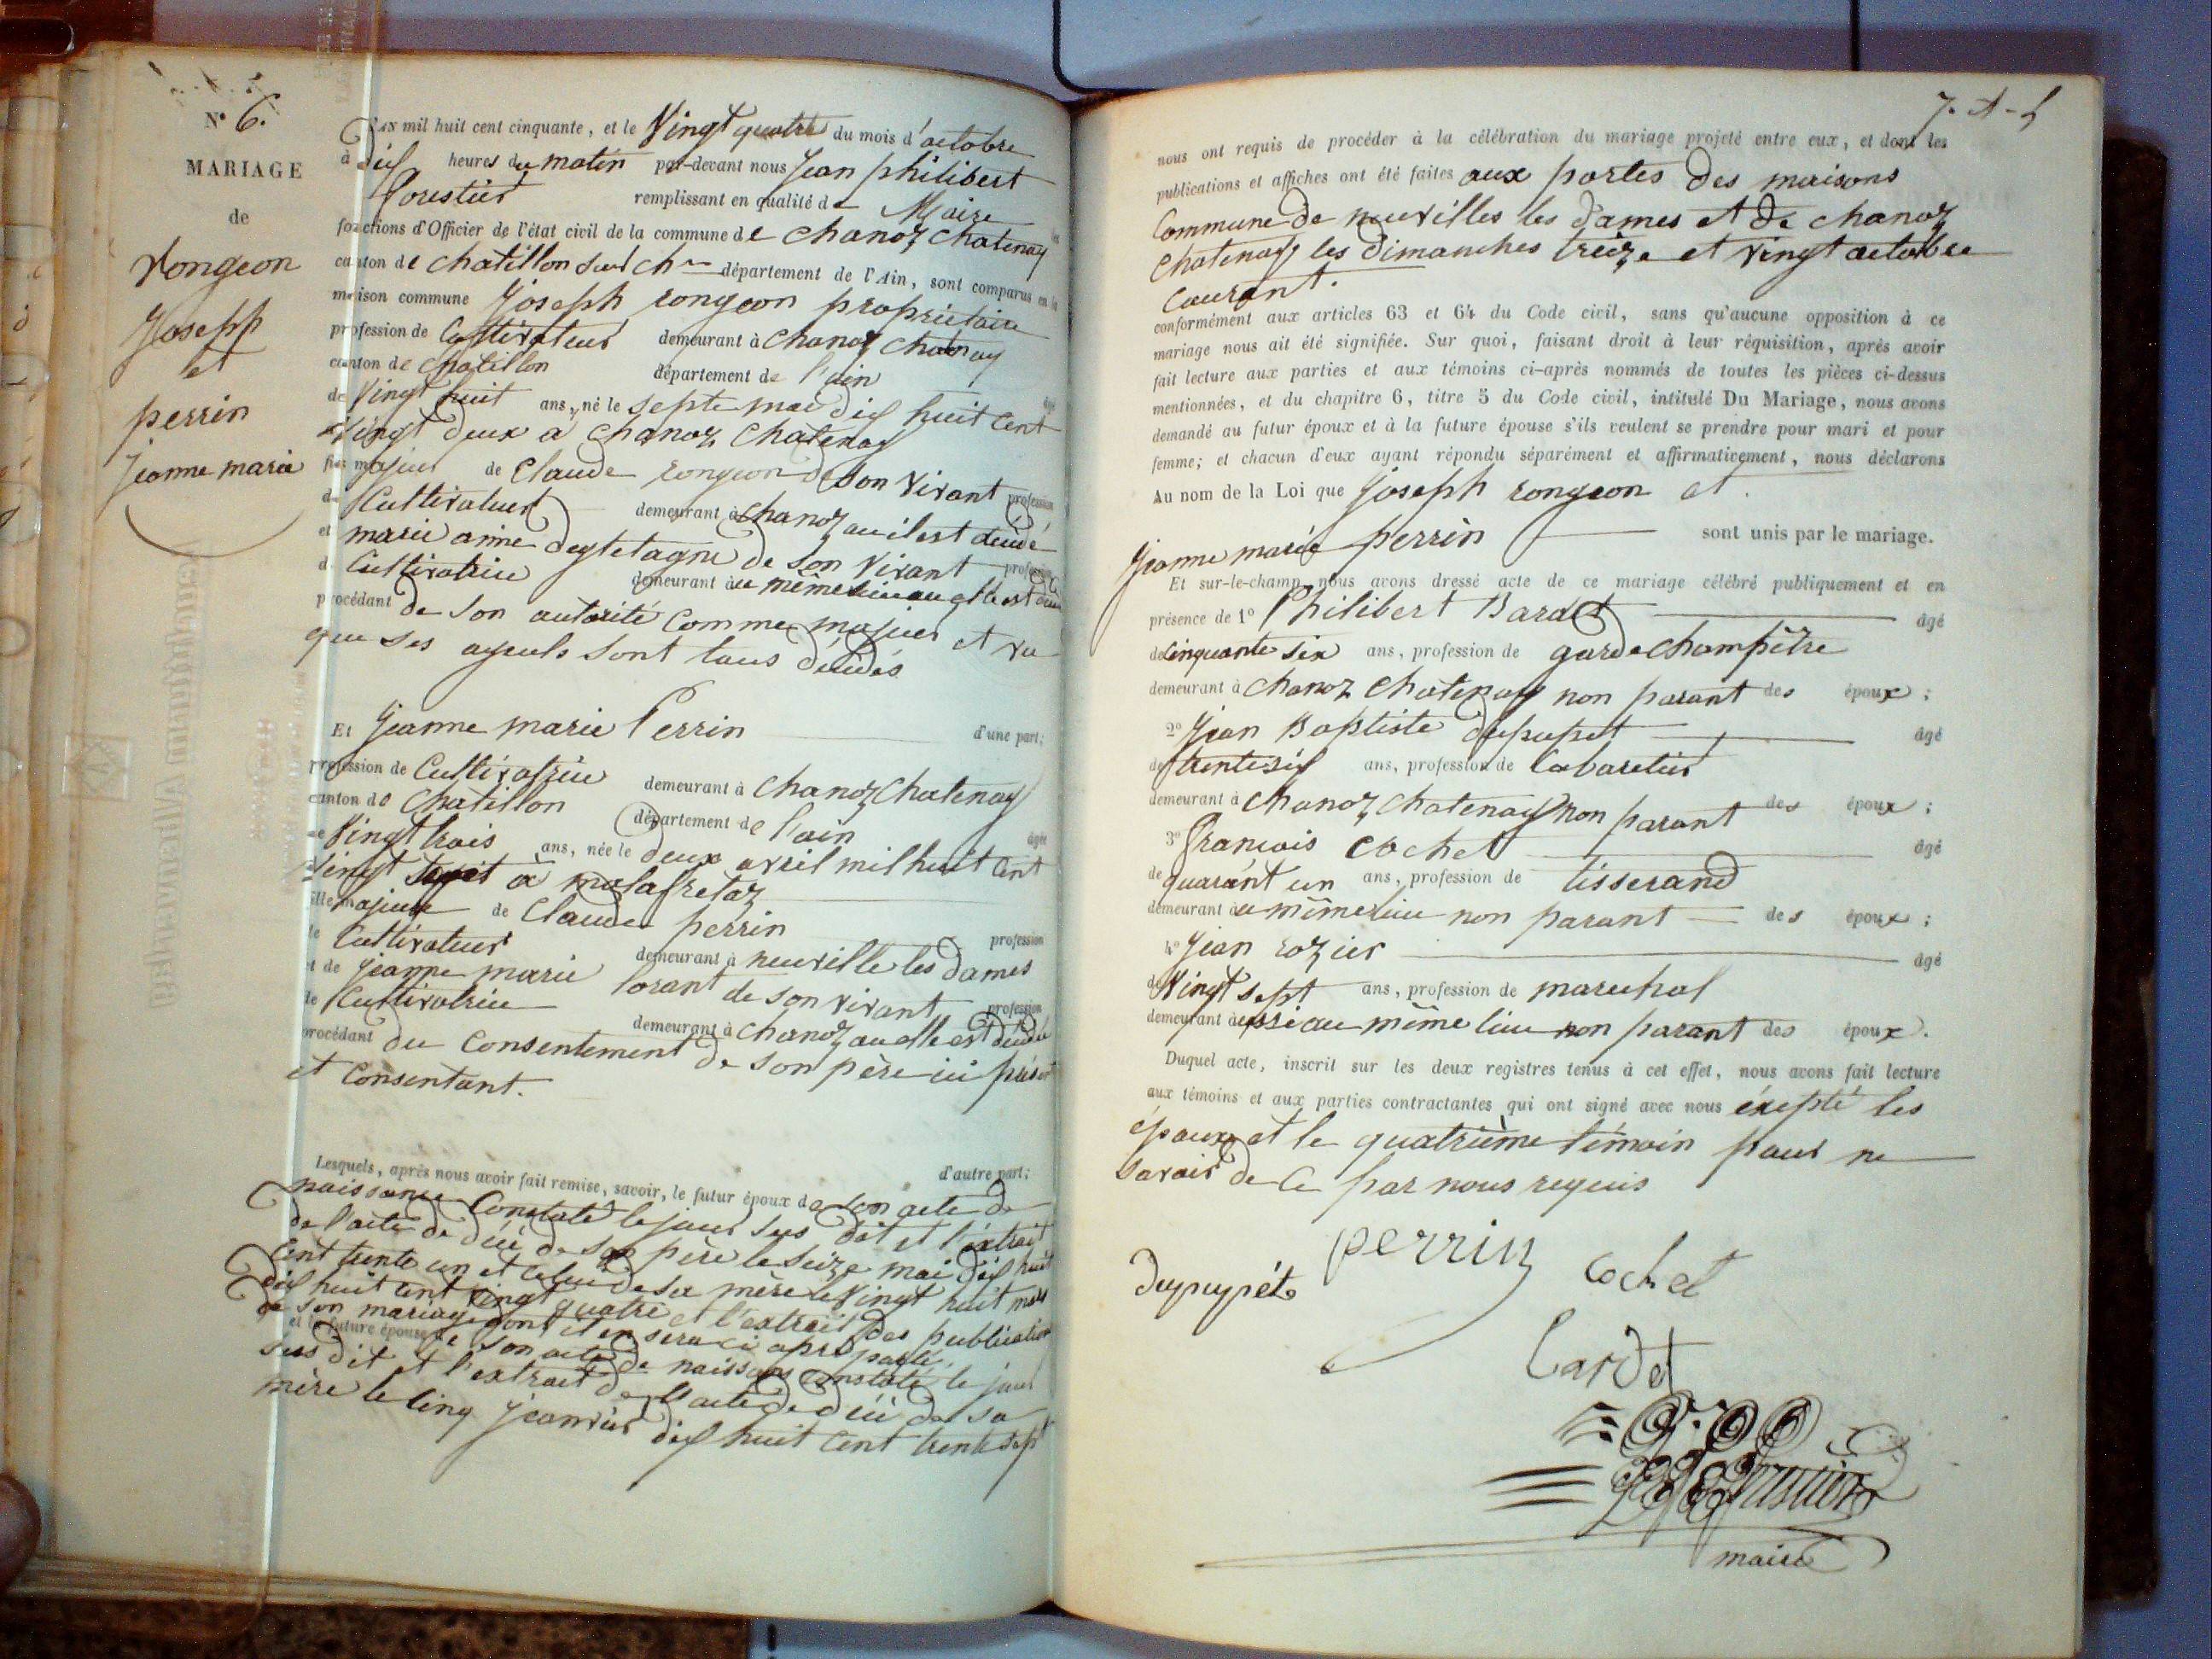 N° 6.
MARIAGE
de
Rongeon
Joseph
et
perrin
Jeanne marie
L'AN mil huit cent cinquante, et le Vingt quatre du mois d'octobre
à dix heures du matin par-devant nous Jean philibert
forestier remplissant en qualité de Maire les
fonctions d'Officier de l'état civil de la commune de chanoz chatenay
canton de chatillon sur ch.ne département de l'Ain, sont comparus en la
maison commune Joseph rongeon propriétaire
profession de Cultivateur demeurant à chanoz chatenay
canton de chatillon département de l'ain âgé
de Vingt huit ans, né le sept mai dix huit Cent
Vingt deux à chanoz chatenay
fils majeur de Claude rongeon de son vivant profession
de Cultivateur demeurant à chanoz ou il est décédé
et marie anne de son vivant profession
de Cultivatrice demeurant au même lieu ou elle est
procédant de son autorité Comme majeur et vu
que ses ayeuls sont tous décédés
d'une part;
Et Jeanne marie Perrin
profession de Cultivatrice demeurant à chanoz chatenay
canton de chatillon département de l'ain âgée
de Vingt trois ans, née le deux avril mil huit Cent
Vingt sept à malafretaz
fille majeure de Claude perrin profession
de Cultivateur demeurant à neuville les dames
et de Jeanne marie lorant de son vivant profession
de Cultivatrice demeurant à chanoz ou elle est décédée
procédant du Consentement de son père ici présent
et Consentant.
d'autre part;
Lesquels, après nous avoir fait remise, savoir, le futur époux de son acte de
naissance Constaté le jour sus dit et l'extrait
de l'acte de décé de son père le seize mai dix huit
Cent trente un et celui de sa mère le Vingt huit mars
dix huit cent Vingt quatre et l'extrait des publications
de son mariage dont il en sera ci après parlé,
et la future épouse de son acte de naissance constaté le jour
sus dit et l'extrait de l'acte de décé de sa
mère le cinq Janvier dix huit Cent trente sept
nous ont requis de procéder à la célébration du mariage projeté entre eux, et dont les
publications et affiches ont été faites aux portes des maisons
Commune de neuvilles les dames et de chanoz
chatenay les dimanches treize et vingt octobre
Courant.
conformément aux articles 63 et 64 du Code civil, sans qu'aucune opposition à ce
mariage nous ait été signifiée. Sur quoi, faisant droit à leur réquisition, après avoir
fait lecture aux parties et aux témoins ci-après nommés de toutes les pièces ci-dessus
mentionnées, et du chapitre 6, titre 5 du Code civil, intitulé Du Mariage, nous avons
demandé au futur époux et à la future épouse s'ils veulent se prendre pour mari et pour
femme; et chacun d'eux ayant répondu séparément et affirmativement, nous déclarons
Au nom de la Loi que Joseph rongeon et
Jeanne marie perrin sont unis par le mariage.
Et sur-le-champ nous avons dressé acte de ce mariage célébré publiquement et en
présence de 1° Philibert Bardet âgé
de Cinquante six ans, profession de garde champêtre
demeurant à chanoz chatenay non parant des époux;
2° Jean Baptiste dupupet âgé
de trente six ans, profession de Cabaretier
demeurant à chanoz chatenay non parant des époux;
3° francois cochet âgé
de quarant un ans, profession de tisserand
demeurant au même lieu non parant des époux;
4° Jean rozier âgé
de Vingt sept ans, profession de marechal
demeurant aussi au même lieu non parant des époux.
Duquel acte, inscrit sur les deux registres tenus à cet effet, nous avons fait lecture
aux témoins et aux parties contractantes qui ont signé avec nous éxepté les
époux et le quatrième témoin pour ne
savoir de ce par nous requis
perrin
dupupét
cochet
bardet
forestier
maire